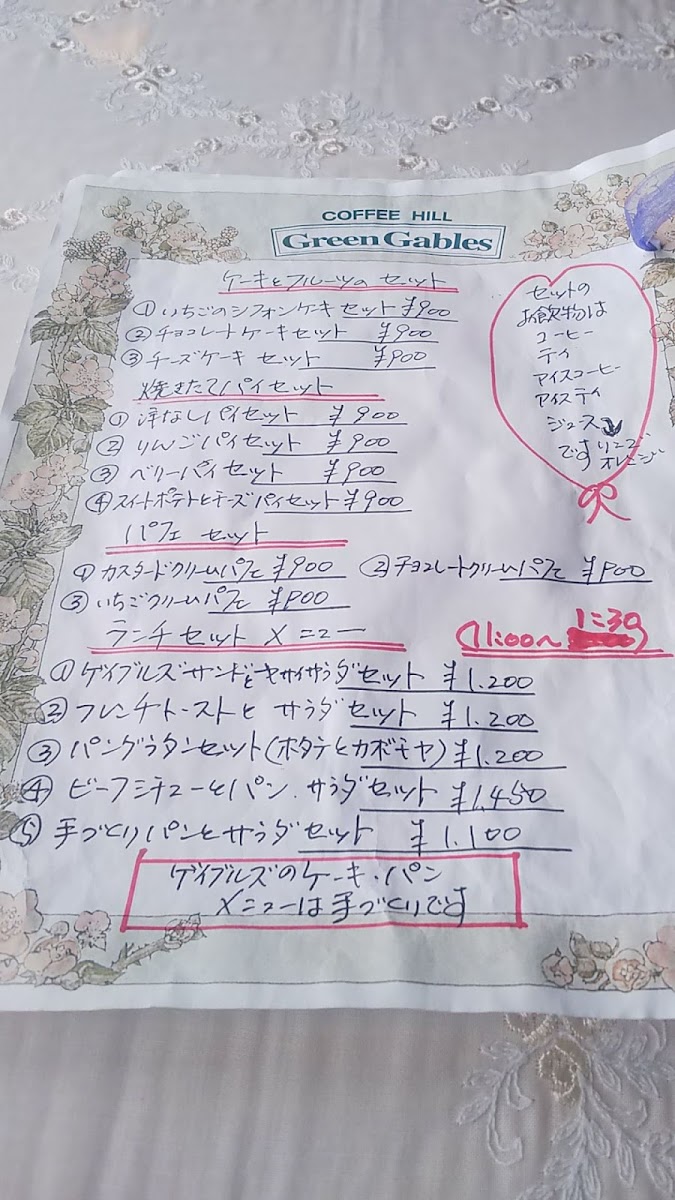 COFFEE HILL
Green Gables
ケーキとフルーツのセット
①いちごのシフォンケーキセット ¥900
②チョコレートケーキセット ¥900
③チーズケーキ セット ¥900
焼きたてパイセット
①洋なしパイセット ¥900
②りんごパイセット ¥900
③ベリーパイセット ¥900
④スイートポテトとチーズパイセット ¥900
パフェ セット
①カスタードクリームパフェ ¥900 ②チョコレートクリームパフェ ¥900
③いちごクリームパフェ ¥900
ランチセット メニュー (11:00〜1:30)
①ゲイブルズサンドとヤサイサラダセット ¥1.200
②フレンチトーストと サラダセット ¥1.200
③パングラタンセット(ホタテとカボチャ) ¥1.200
④ビーフシチューとパン.サラダセット ¥1.450
⑤手づくりパンとサラダセット ¥1.100
ゲイブルズのケーキ・パン
メニューは手づくりです
セットの
お飲物は
コーヒー
ティ
アイスコーヒー
アイスティ
ジュース
です りんご
オレンジ